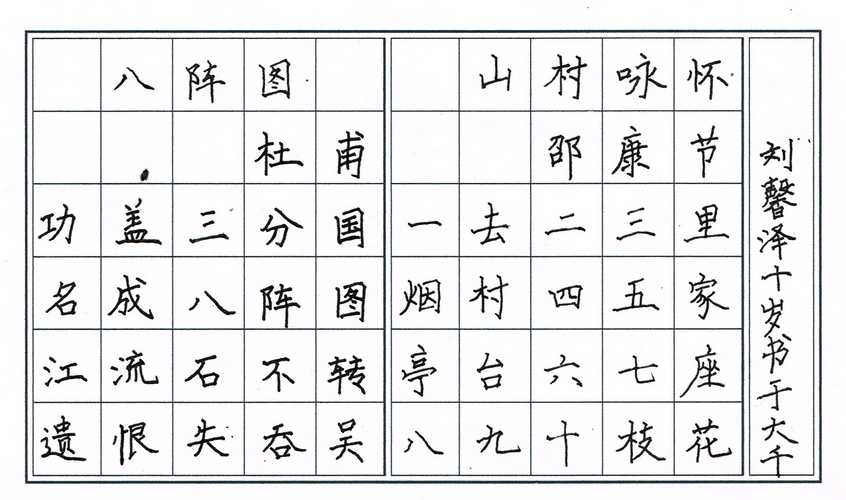 八阵图
杜甫
功盖三分国
名成八阵图
江流石不转
遗恨失吞吴
山村咏怀
邵康节
一去二三里
烟村四五家
亭台六七座
八九十枝花
刘馨泽十岁书于大千